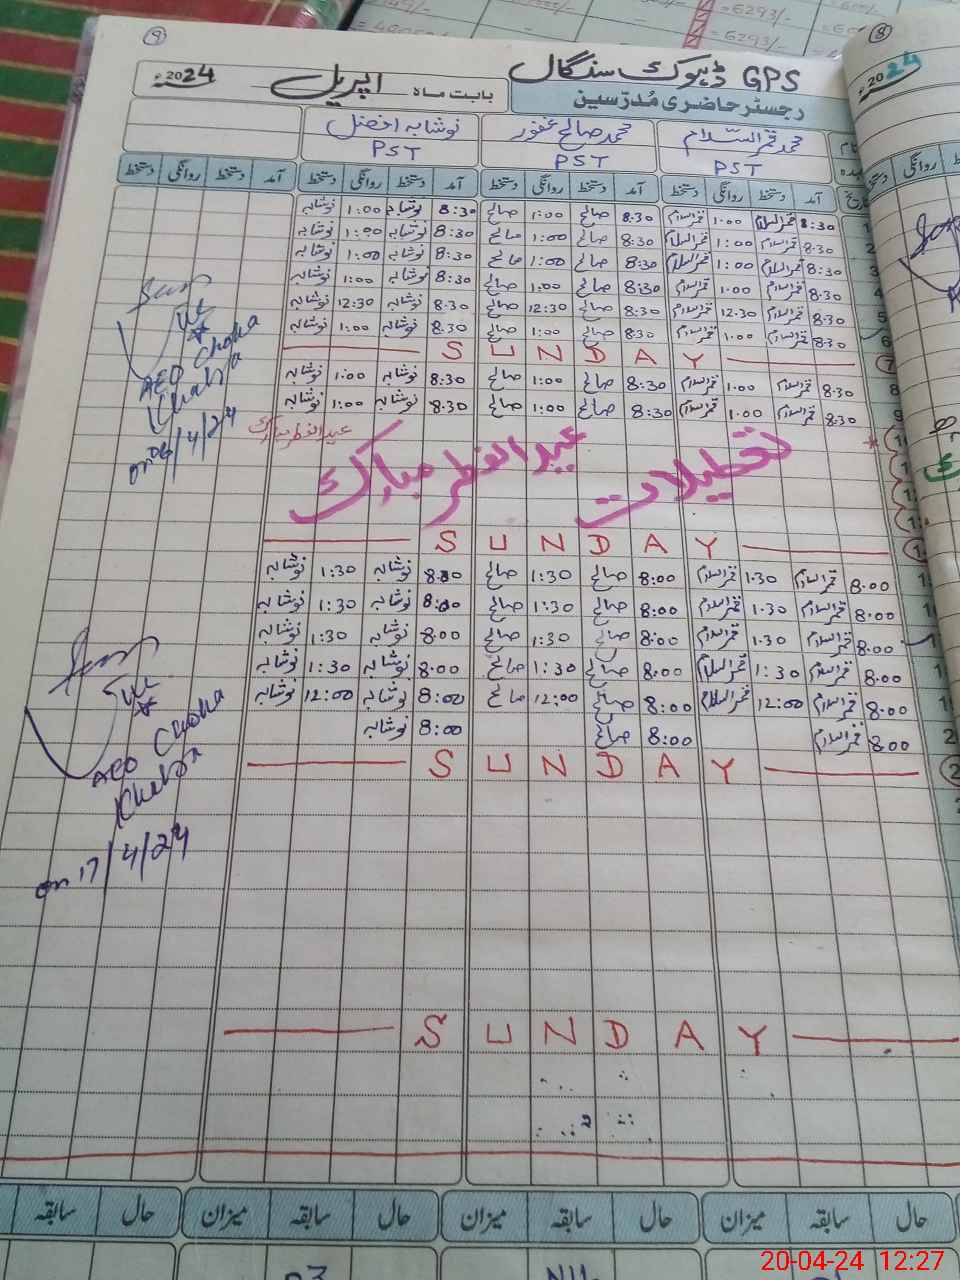 =6293/-
9
8
GPS ڈہوک سنگال
بابت ماہ اپریل 2024ء
2024
رجسٹر حاضری مُدرّسین
محمد قمرالسّلام محمد صالح غفور نوشابہ افضل
PST PST PST
آمد دستخط روانگی دستخط آمد دستخط روانگی دستخط آمد دستخط روانگی دستخط آمد دستخط روانگی دستخط
8:30 قمرالسلام 1:00 قمرالسلام 8:30 صالح 1:00 صالح 8:30 نوشابہ 1:00 نوشابہ
8:30 قمرالسلام 1:00 قمرالسلام 8:30 صالح 1:00 صالح 8:30 نوشابہ 1:00 نوشابہ
8:30 قمرالسلام 1:00 قمرالسلام 8:30 صالح 1:00 صالح 8:30 نوشابہ 1:00 نوشابہ
8:30 قمرالسلام 1:00 قمرالسلام 8:30 صالح 1:00 صالح 8:30 نوشابہ 1:00 نوشابہ
8:30 قمرالسلام 12:30 قمرالسلام 8:30 صالح 12:30 صالح 8:30 نوشابہ 12:30 نوشابہ
8:30 قمرالسلام 1:00 قمرالسلام 8:30 صالح 1:00 صالح 8:30 نوشابہ 1:00 نوشابہ
SUNDAY
8:30 قمرالسلام 1:00 قمرالسلام 8:30 صالح 1:00 صالح 8:30 نوشابہ 1:00 نوشابہ
8:30 قمرالسلام 1:00 قمرالسلام 8:30 صالح 1:00 صالح 8:30 نوشابہ 1:00 نوشابہ
AEO Choha
Khalsa
on 06/4/24
عیدالفطر مبارک
تعطیلات عیدالفطر مبارک
SUNDAY
8:00 قمرالسلام 1:30 قمرالسلام 8:00 صالح 1:30 صالح 8:00 نوشابہ 1:30 نوشابہ
8:00 قمرالسلام 1:30 قمرالسلام 8:00 صالح 1:30 صالح 8:00 نوشابہ 1:30 نوشابہ
8:00 قمرالسلام 1:30 قمرالسلام 8:00 صالح 1:30 صالح 8:00 نوشابہ 1:30 نوشابہ
8:00 قمرالسلام 1:30 قمرالسلام 8:00 صالح 1:30 صالح 8:00 نوشابہ 1:30 نوشابہ
8:00 قمرالسلام 12:00 قمرالسلام 8:00 صالح 12:00 صالح 8:00 نوشابہ 12:00 نوشابہ
8:00 قمرالسلام 8:00 صالح 8:00 نوشابہ
SUNDAY
AEO Choha
Khalsa
on 17/4/24
SUNDAY
حال سابقہ میزان حال سابقہ میزان حال سابقہ میزان حال سابقہ
20-04-24 12:27